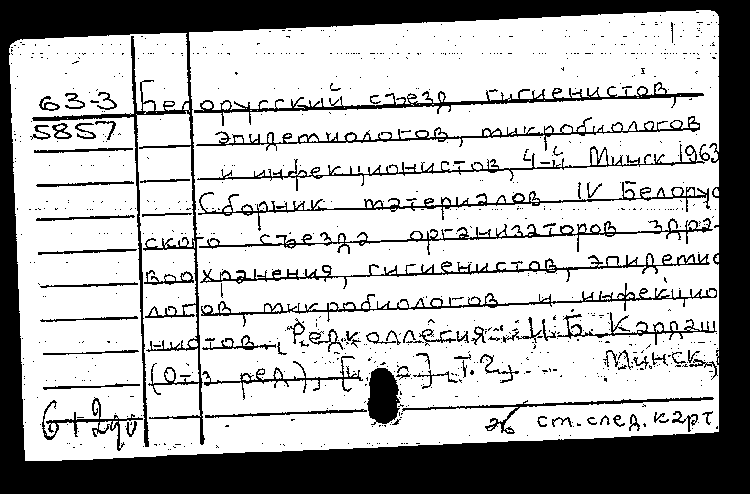 63-3 Белорусский съезд гигиенистов,
5857 эпидемиологов, микробиологов
и инфекционистов, 4-й Минск, 1963
Сборник материалов IV Белорус
ского съезда организаторов здра-
воохранения, гигиенистов, эпидемио
логов, микробиологов и инфекцио
нистов. Редколлегия: И.Б. Кардаш
(отв. ред.), [и др] Т.2, Минск,
ст. след. карт.